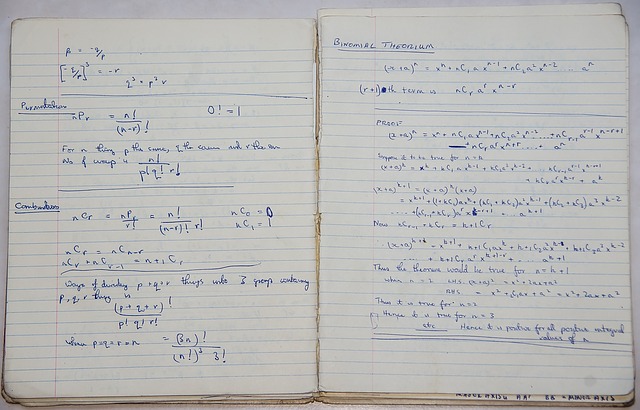 β = -q/p
[-q/p]³ = -r
q³ = p³ r
Permutations
nPr = n!/(n-r)!    0! = 1
For n things p the same, q the same and r the same
No of ways is n!/(p! q! r!)
Combinations
nCr = nPr/r! = n!/((n-r)! r!)    nC0 = 0
nC1 = 1
nCr = nCn-r
nCr + nCr-1 = n+1Cr
Ways of dividing p + q + r things into 3 groups containing
p, q, r things is
(p+q+r)!/(p! q! r!)
where p=q=r=n = (3n)!/((n!)³ 3!)
BINOMIAL THEORIUM
(x+a)ⁿ = xⁿ + nC1 a xⁿ⁻¹ + nC2 a² xⁿ⁻² ... aⁿ
(r+1)th term is nCr aʳ xⁿ⁻ʳ
PROOF
(x+a)ⁿ = xⁿ + nC1 a xⁿ⁻¹ + nC2 a² xⁿ⁻² ... + nCr-1 aʳ⁻¹ xⁿ⁻ʳ⁺¹
+ nCr aʳ xⁿ⁻ʳ ... aⁿ
Suppose it to be true for n = k
(x+a)ᵏ = xᵏ + kC1 a xᵏ⁻¹ + kC2 a² xᵏ⁻²
(x+a)ᵏ⁺¹ = (x+a)ᵏ (x+a)
Now kCr-1 + kCr = k+1Cr
Thus the theorem would be true for n = k+1
when n = 2 LHS. (x+a)² = x² + 2ax + a²
RHS = x² + 2C1 ax + a² = x² + 2ax + a²
Thus it is true for n = 2
Hence it is true for n = 3
etc Hence it is positive for all positive integral
values of n